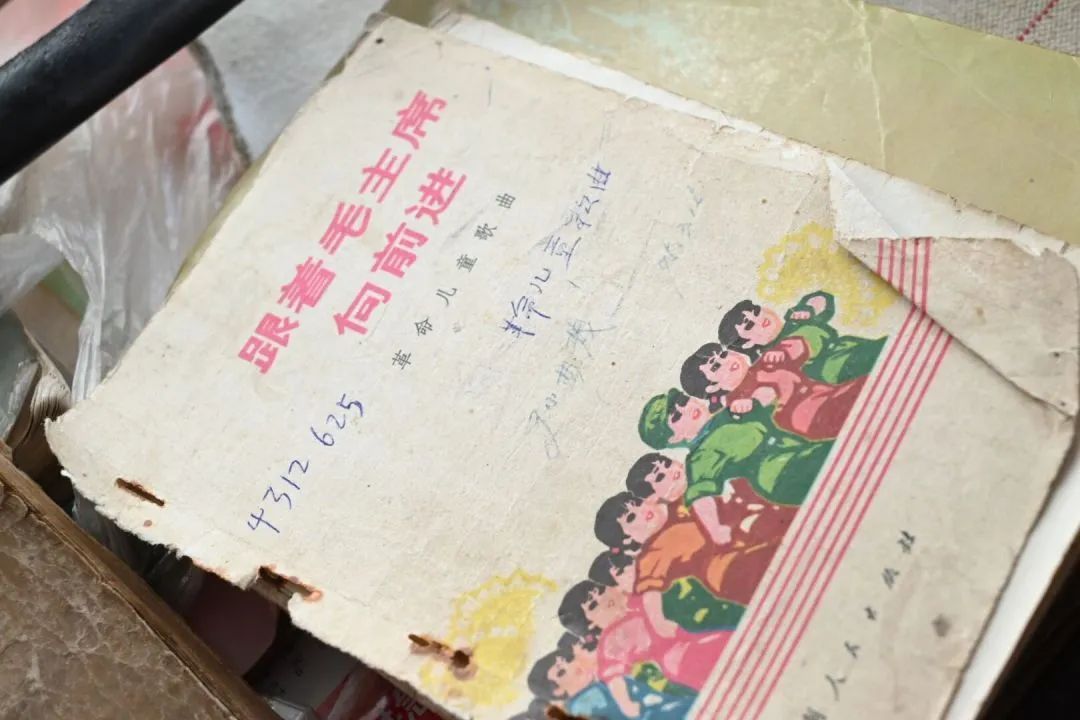 跟着毛主席
向前进
革命儿童歌曲
儿童歌曲
4312625
人民出版社